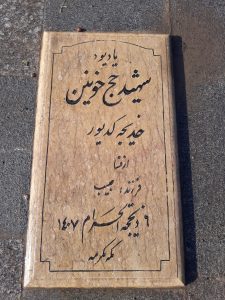 یادبود
شهید حج خونین
خدیجه کدیور
از فسا
فرزند: حبیب
۶ ذیحجه الحرام ۱۴۰۷
مکه مکرمه